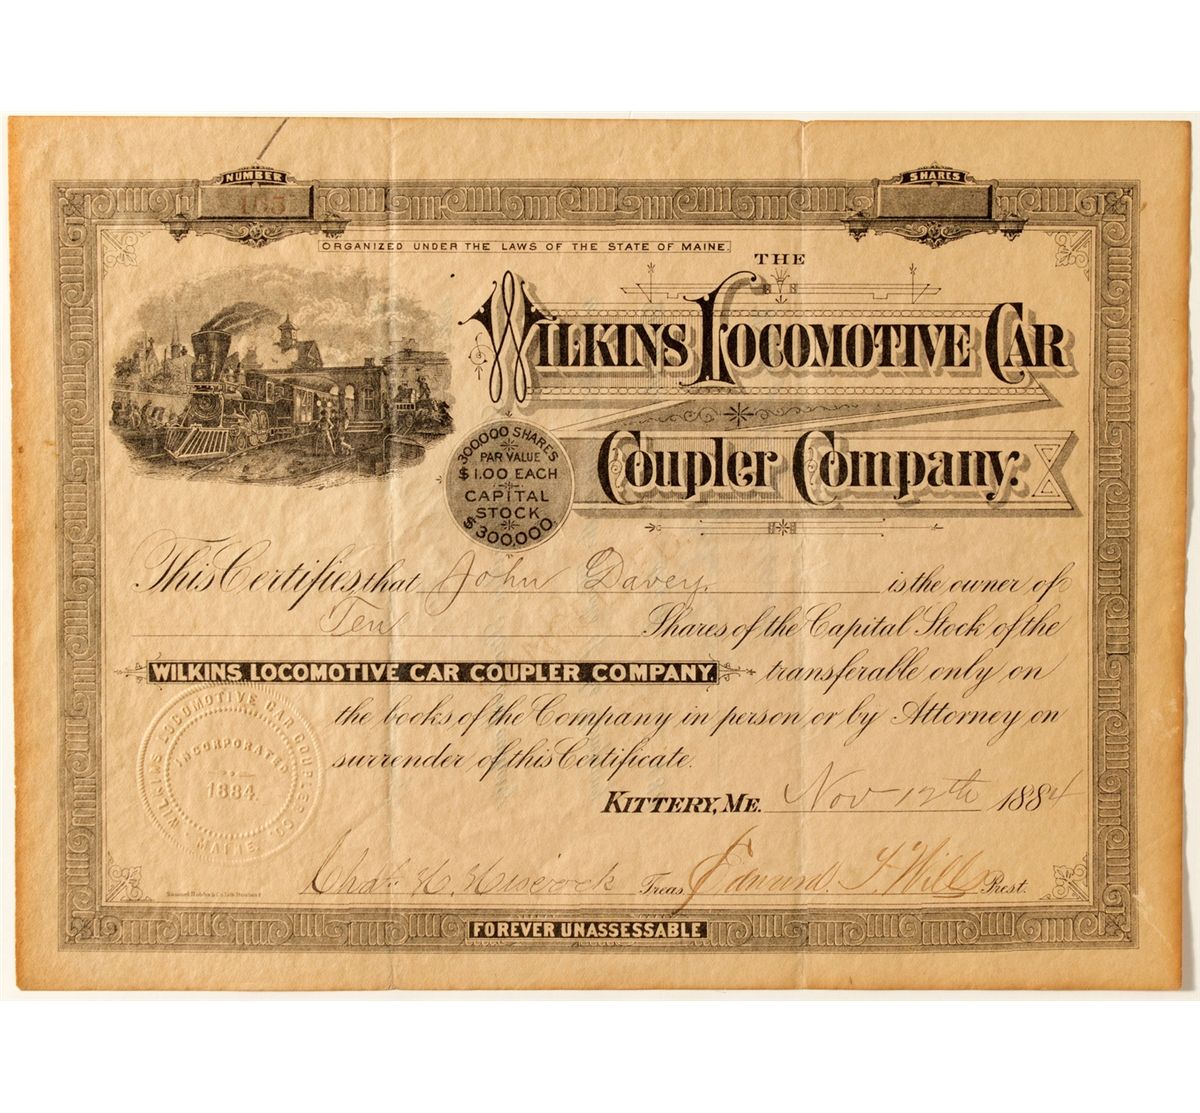 NUMBER
SHARES
ORGANIZED UNDER THE LAWS OF THE STATE OF MAINE.
THE
WILKINS LOCOMOTIVE CAR
COUPLER COMPANY.
300,000 SHARES
PAR VALUE
$1.00 EACH
CAPITAL
STOCK
$300,000.
This Certifies, that John Davey. is the owner of
Ten Shares of the Capital Stock of the
WILKINS LOCOMOTIVE CAR COUPLER COMPANY. transferable only on
the books of the Company in person or by Attorney on
surrender of this Certificate.
KITTERY, ME. Nov 12th 1884
WILKINS LOCOMOTIVE CAR COUPLER CO.
INCORPORATED
1884.
MAINE.
Chas. H. Hiscock Treas. Edward Prest.
FOREVER UNASSESSABLE